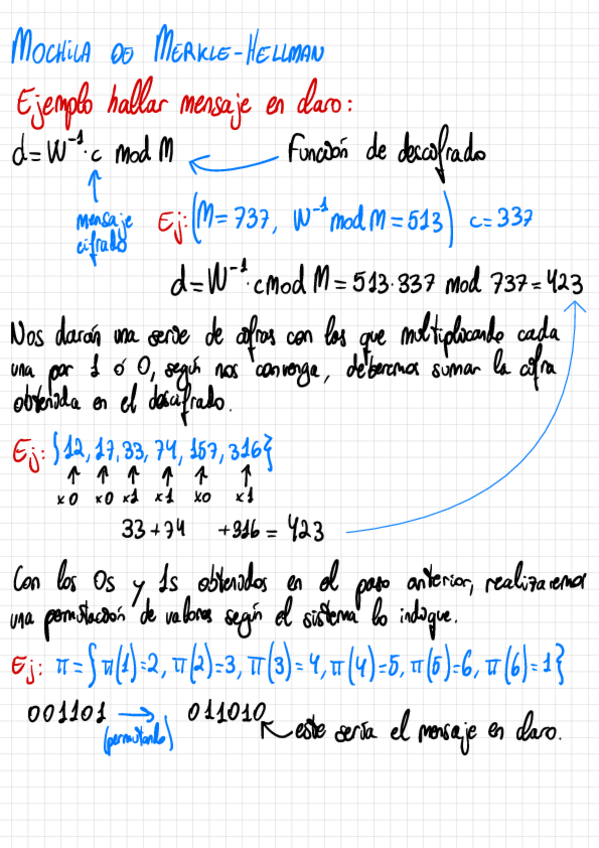 MOCHILA DE MERKLE-HELLMAN
Ejemplo hallar mensaje en claro:
d=W⁻¹·c mod M
Función de descifrado
mensaje
cifrado
Ej: (M=737, W⁻¹ mod M=513) c=337
d=W⁻¹·c mod M=513·337 mod 737=423
Nos darán una serie de cifras con las que multiplicando cada
una por 1 ó 0, según nos convenga, deberemos sumar la cifra
obtenida en el descifrado.
Ej: {12, 17, 33, 74, 157, 316}
x0 x0 x1 x1 x0 x1
33+74 +316=423
Con los 0s y 1s obtenidos en el paso anterior, realizaremos
una permutación de valores según el sistema lo indique.
Ej: π={π(1)=2, π(2)=3, π(3)=4, π(4)=5, π(5)=6, π(6)=1}
001101 → 011010
(permutando)
este sería el mensaje en claro.